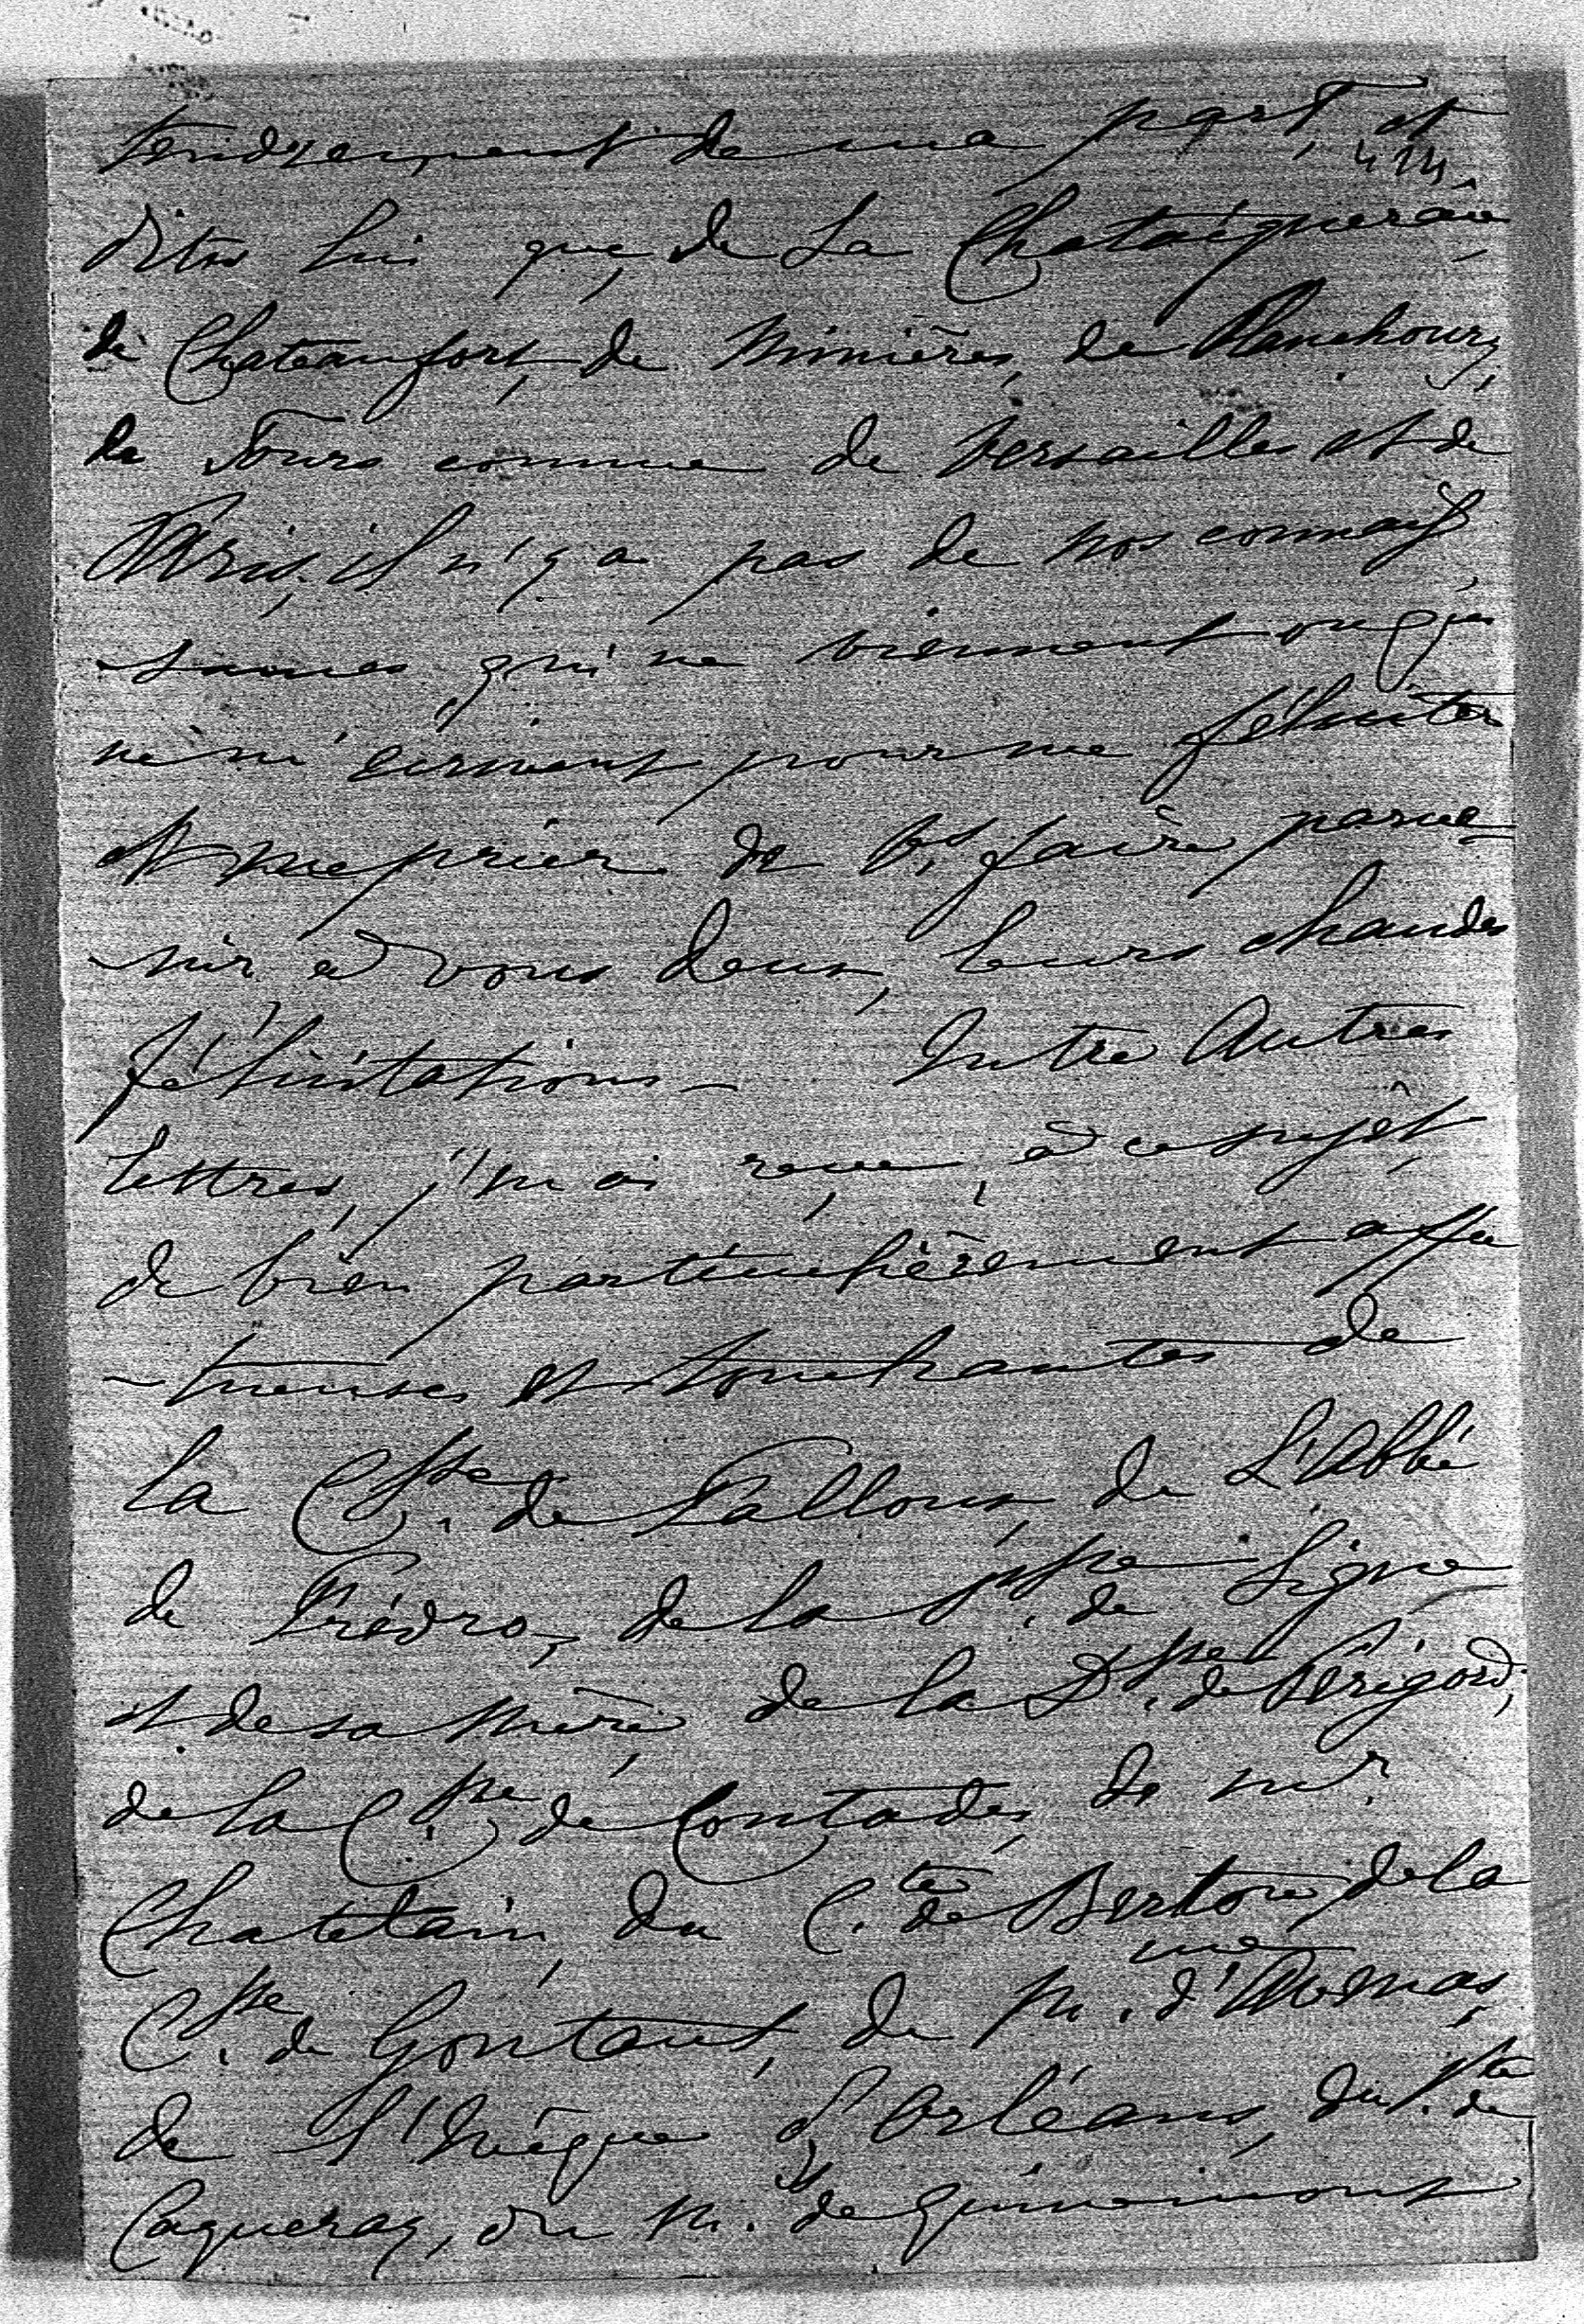 tendrement de ma part, et
dites lui que, de La Chataigneraie,
de Chateaufort, de Minières, de Planchoury,
de Tours comme de Versailles et de
Paris, il n'y a pas de nos connais
sances qui ne viennent ou
ne m'écrivent pour me féliciter
et me prier de Vs faire parve-
nir à vous deux, leurs chaudes
félicitations — Entre Autres
lettres, j'en ai reçu, à ce sujet
de bien particulièrement affec
-tueuses et touchantes de
la Csse de Falloux, de L'Abbé
de Prédro, de la Psse de Ligne
et de sa mère, de la Dsse de Périgord,
de la Csse de Contades, de mr
Chatelain, du Cte de Berton, de la
Csse de Gontaut, de Mme d'Armas,
de L'Evêque d'Orléans, du Vte de
Caqueray, du M. de Quinemont